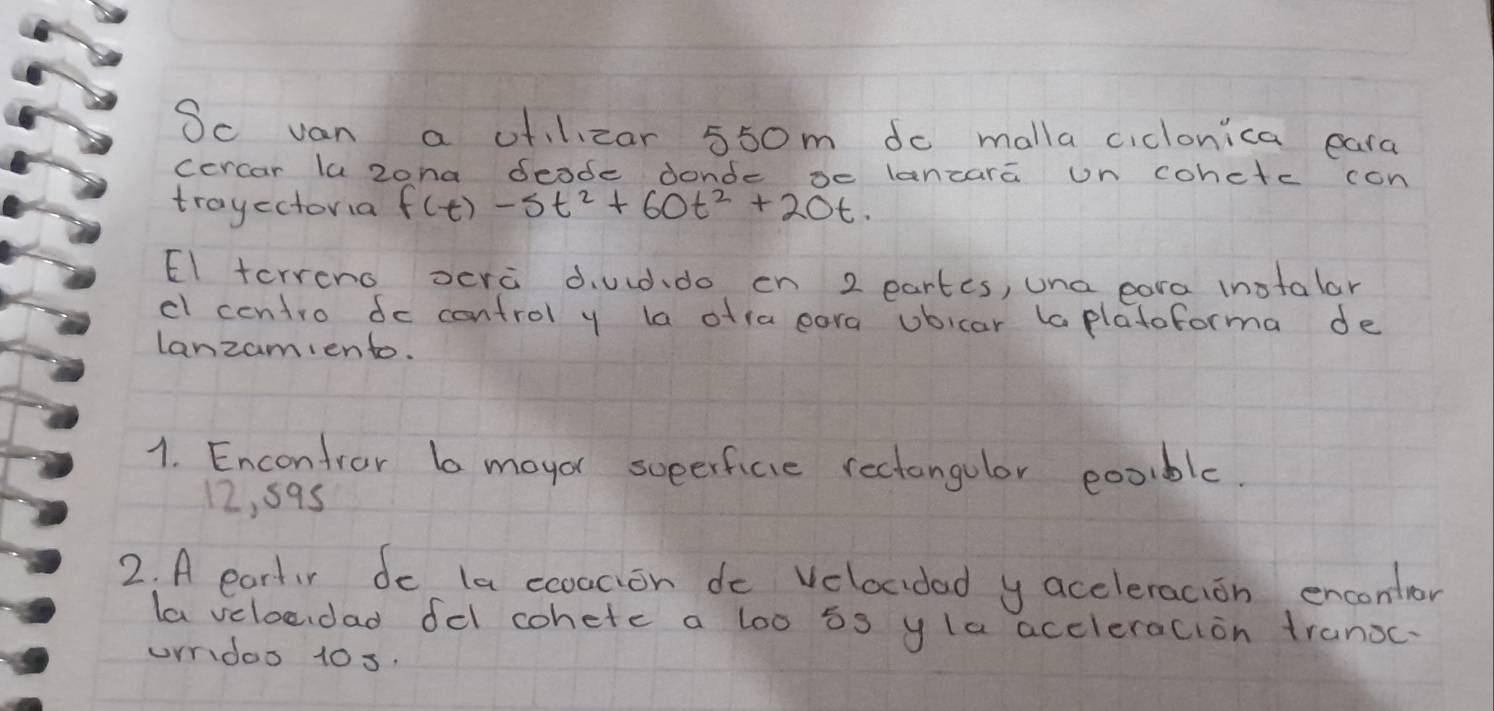 Se van a utilizar 550m de malla ciclonica para
cercar la zona desde donde se lanzará un cohete con
trayectoria f(t) -5t² + 60t² + 20t.
El terreno será dividido en 2 partes, una para instalar
el centro de control y la otra para ubicar la plataforma de
lanzamiento.
1. Encontrar la mayor superficie rectangular posible.
12,595
2. A partir de la ecuación de velocidad y aceleración encontrar
la velocidad del cohete a los 5s y la aceleración transc-
urridos 10s.